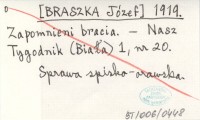 [BRASZKA Józef] 1919.
Zapomnieni bracia. – Nasz
Tygodnik (Biała) 1, nr 20.
Sprawa spisko-orawska.
BT/006/0448